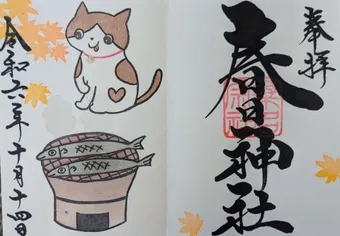 奉拝
春日神社
令和六年十月十四日